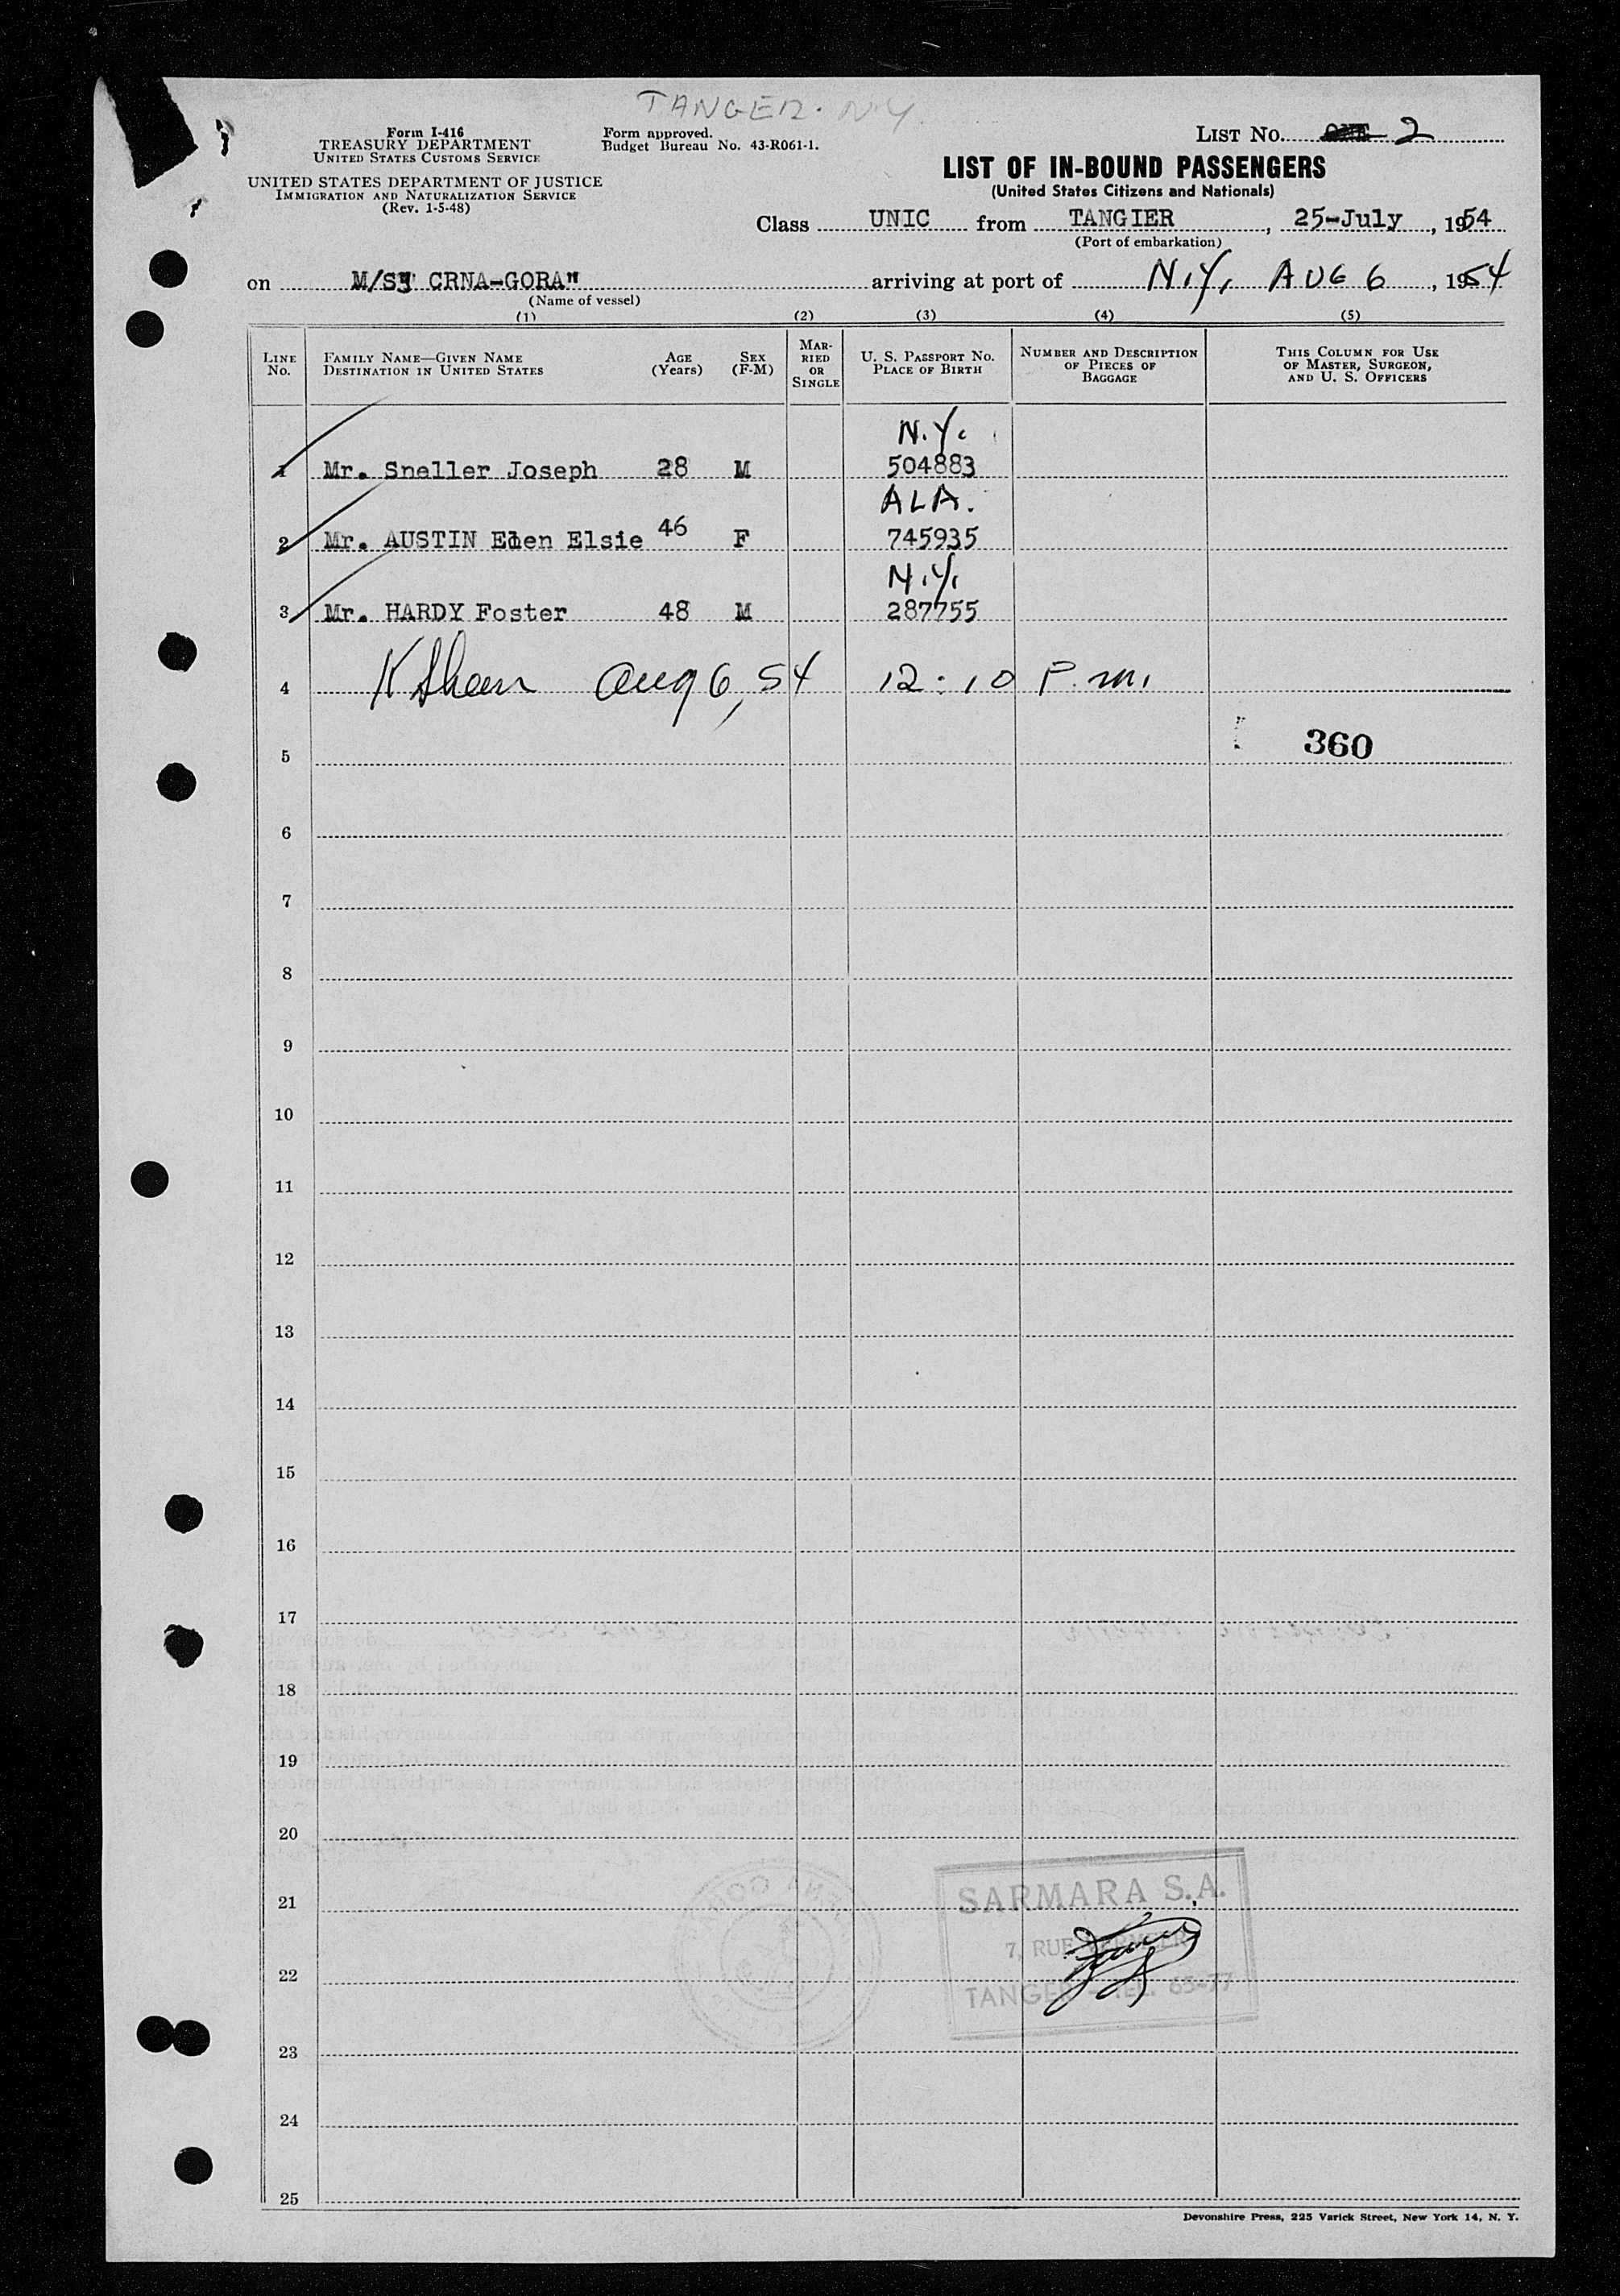 TANGER. N.Y.
Form I-416
TREASURY DEPARTMENT
UNITED STATES CUSTOMS SERVICE
UNITED STATES DEPARTMENT OF JUSTICE
IMMIGRATION AND NATURALIZATION SERVICE
(Rev. 1-5-48)
Form approved.
Budget Bureau No. 43-R061-1.
LIST NO. ONE 2
LIST OF IN-BOUND PASSENGERS
(United States Citizens and Nationals)
Class UNIC from TANGIER, 25-July, 1954
(Port of embarkation)
on M/S" CRNA-GORA" arriving at port of N.Y, AUG 6, 1954
(Name of vessel)
(1) (2) (3) (4) (5)
LINE NO.
FAMILY NAME—GIVEN NAME
DESTINATION IN UNITED STATES
AGE
(Years)
SEX
(F-M)
MAR-
RIED
OR
SINGLE
U. S. PASSPORT NO.
PLACE OF BIRTH
NUMBER AND DESCRIPTION
OF PIECES OF
BAGGAGE
THIS COLUMN FOR USE
OF MASTER, SURGEON,
AND U. S. OFFICERS
N.Y.
1 Mr. Sneller Joseph 28 M 504883
ALA.
2 Mr. AUSTIN Elsie 46 F 745935
N.Y.
3 Mr. HARDY Foster 48 M 287755
4 Aug 6, 54 12:10 P.m.
5 360
6
7
8
9
10
11
12
13
14
15
16
17
18
19
20
21 SARMARA S.A.
7, RUE
22 TANGER TEL. 65-77
23
24
25
Devonshire Press, 225 Varick Street, New York 14, N. Y.